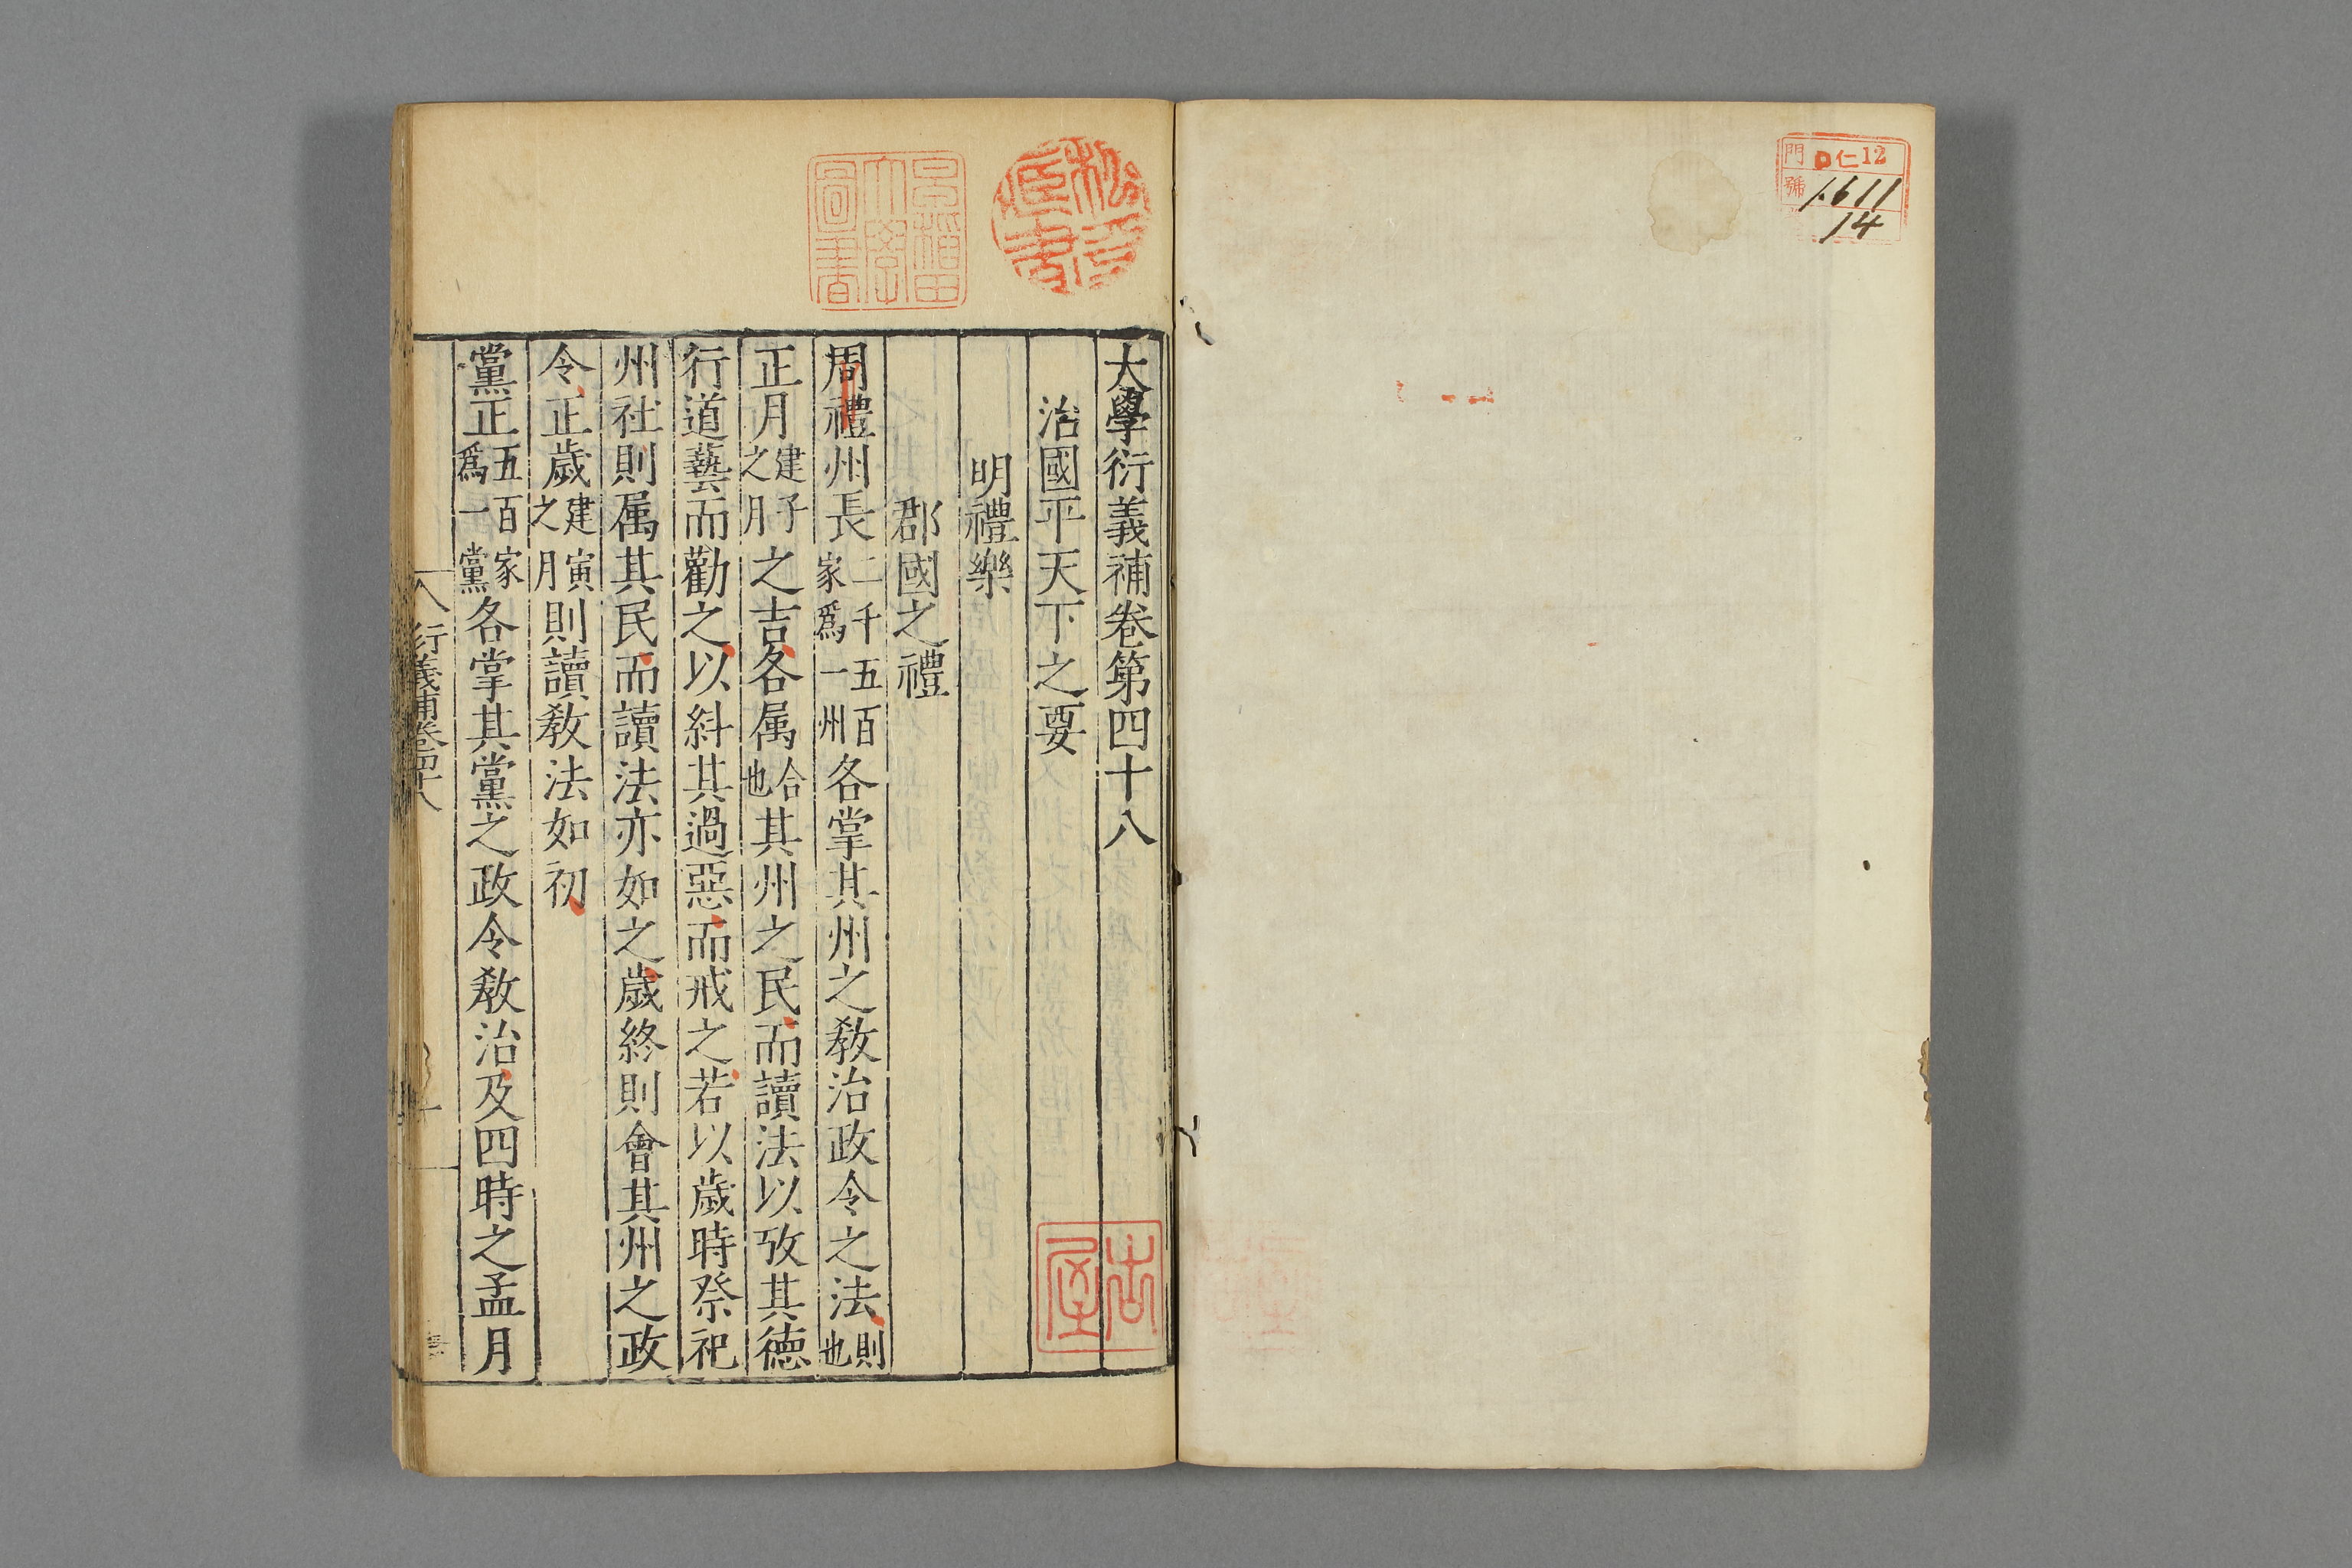 門 口仁12
號 1611
14
早稲田大學圖書
大學衍義補卷第四十八
治國平天下之要
明禮樂
郡國之禮
周禮州長二千五百家爲一州各掌其州之敎治政令之法則也
正月建子之月之吉各属合也其州之民而讀法以攷其德
行道藝而勸之以糾其過惡而戒之若以歲時祭祀
州社則属其民而讀法亦如之歲終則會其州之政
令正歲建寅之月則讀敎法如初
黨正五百家爲一黨各掌其黨之政令敎治及四時之孟月
衍義補卷四十八